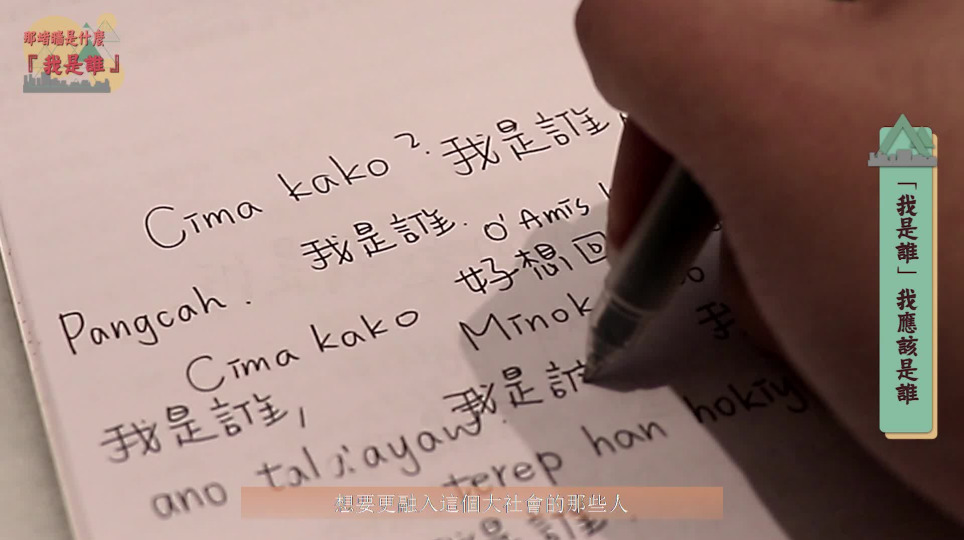 那堵牆是什麼
『我是誰』
Cima kako? 我是誰
我是誰. O'Amis
Pangcah. 好想回
Cima kako Minok
我是誰, 我是
ano
terep han hokiy
是誰.
「我是誰」我應該是誰
想要更融入這個大社會的那些人